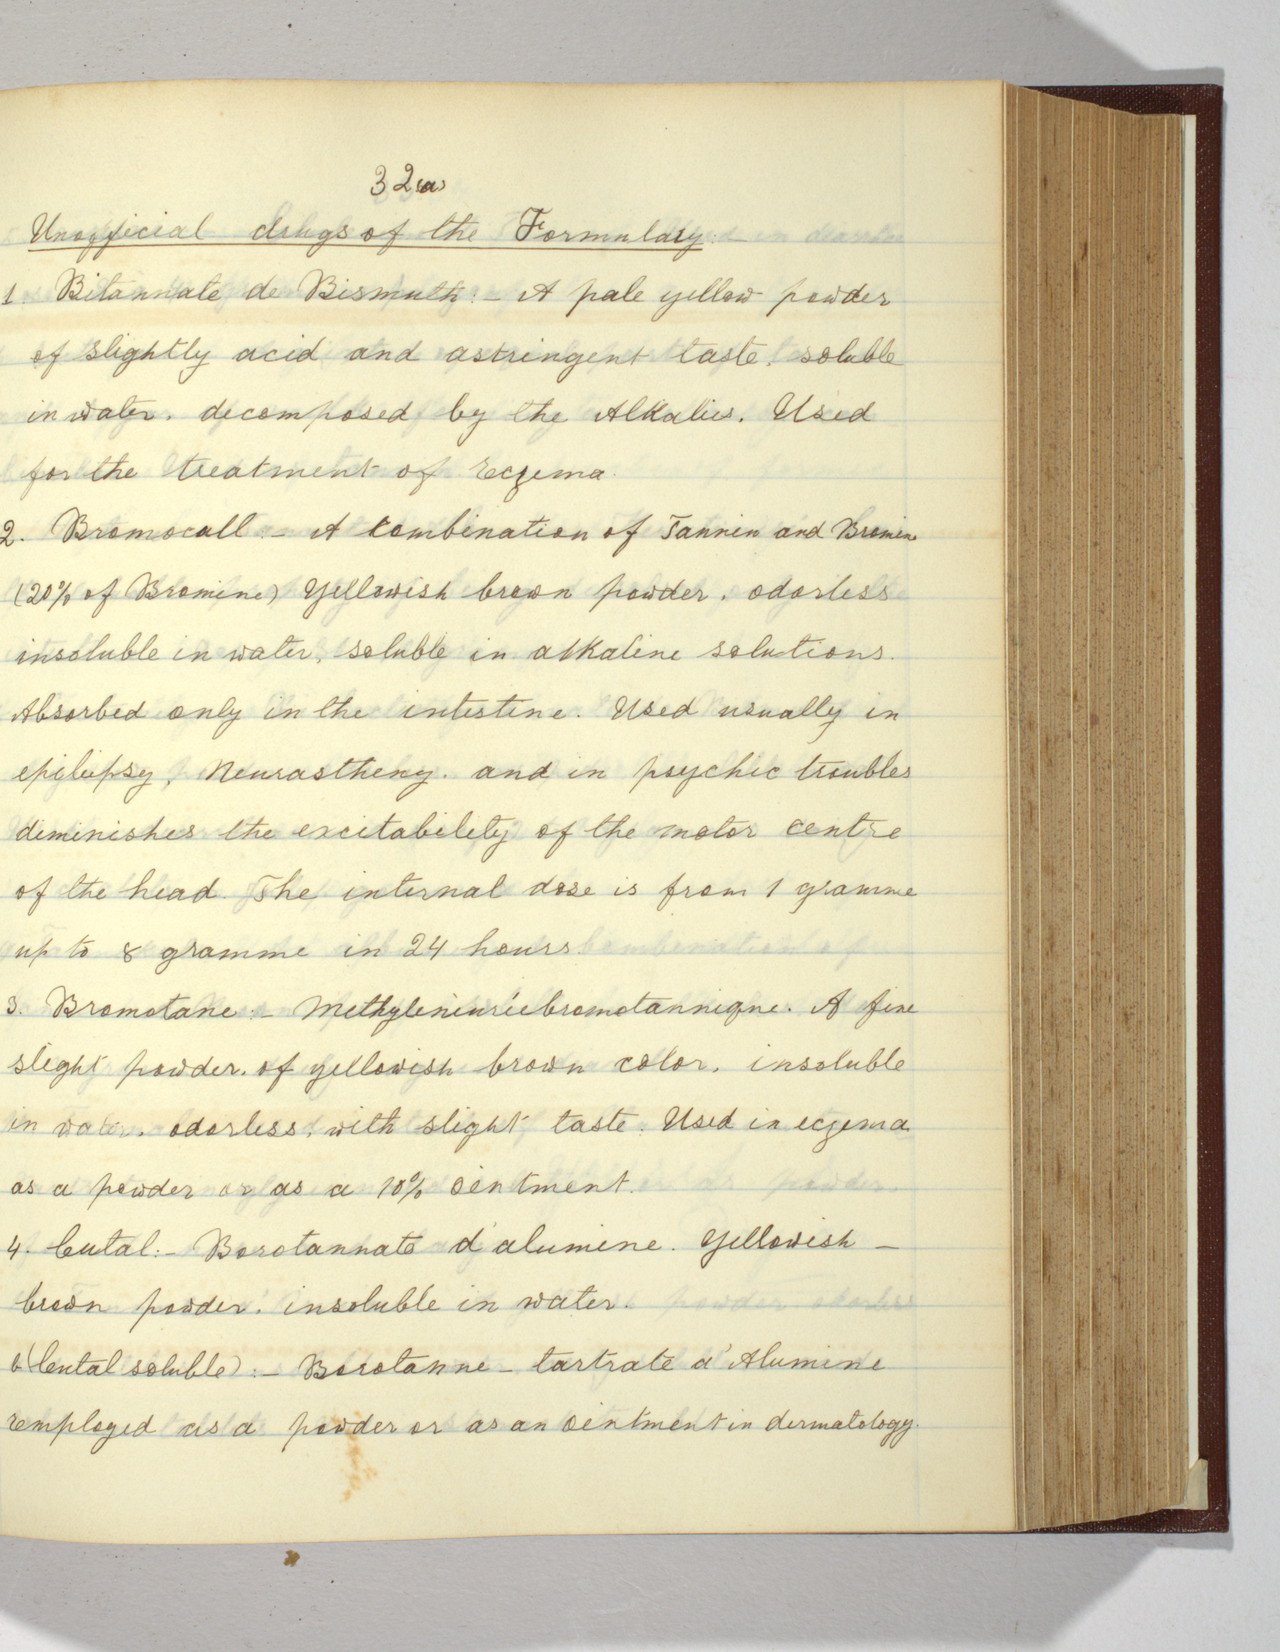 32(a)
Unofficial drugs of the Formulary:-
1 Bitannate de Bismuth:- A pale yellow powder
of slightly acid and astringent taste. soluble
in water. decomposed by the Alkalies. Used
for the treatment of Eczema.
2. Bromocall:- A combination of Tannin and Bromine
(20% of Bromine) Yellowish brown powder, odorless
insoluble in water, soluble in alkaline solutions.
Absorbed only in the intestine. Used usually in
epilepsy, Neurastheny. and in psychic troubles
diminishes the excitability of the motor centre
of the head. The internal dose is from 1 gramme
up to 8 gramme in 24 hours.
3. Bromotane:- Methylèneuréebromotannique. A fine
slight powder. of yellowish brown color. insoluble
in water. odorless. with slight taste. Used in eczema
as a powder or as a 10% ointment.
4. Cutal:- Borotannate d'alumine. Yellowish -
brown powder. insoluble in water.
b(Cutal soluble):- Borotanne - tartrate d'Alumine
Employed as a powder or as an ointment in dermatology